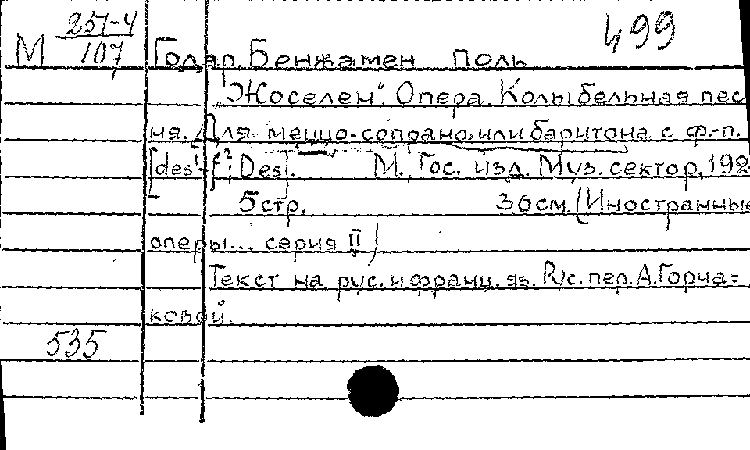 М 251-4/107 499
Годар, Бенжамен Поль
"Жоселен". Опера. Колыбельная пес
ня. Для меццо-сопрано или баритона с ф.-п.
[des¹-f²; Des]. М., Гос. изд. Муз. сектор, 192
5 стр. 36 см. (Иностранные
оперы... серия II)
Текст на рус. и франц. яз. Рус. пер. А. Горча=
ковой.
535